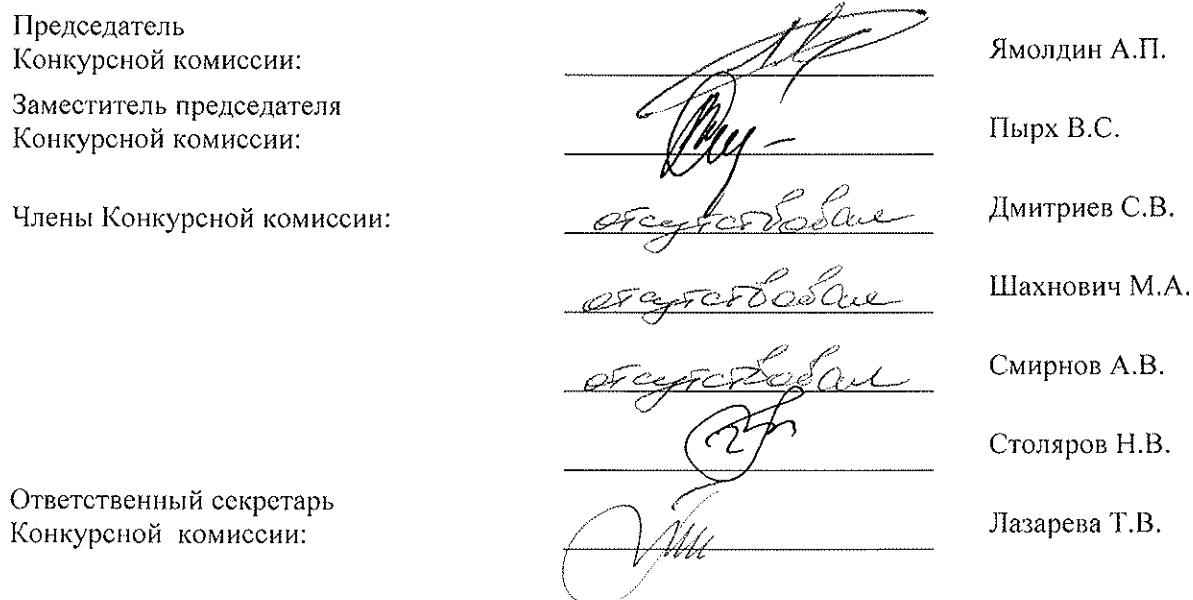 Председатель
Конкурсной комиссии: Ямолдин А.П.
Заместитель председателя
Конкурсной комиссии: Пырх В.С.
Члены Конкурсной комиссии: отсутствовал Дмитриев С.В.
отсутствовал Шахнович М.А.
отсутствовал Смирнов А.В.
Столяров Н.В.
Ответственный секретарь
Конкурсной комиссии: Лазарева Т.В.